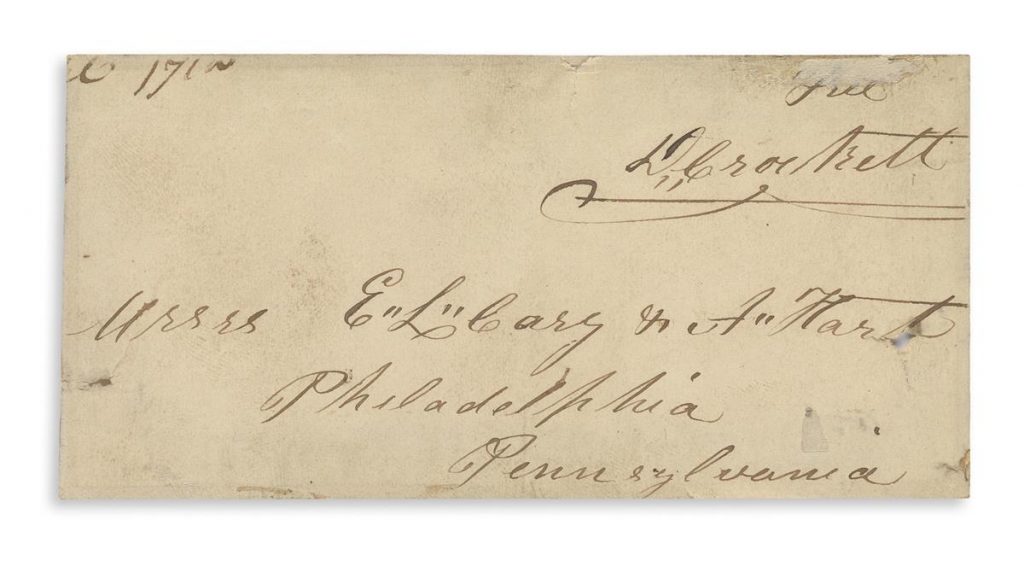 Free
D,, Crockett
Messrs E" L" Cary & A" Hart
Philadelphia
Pennsylvania